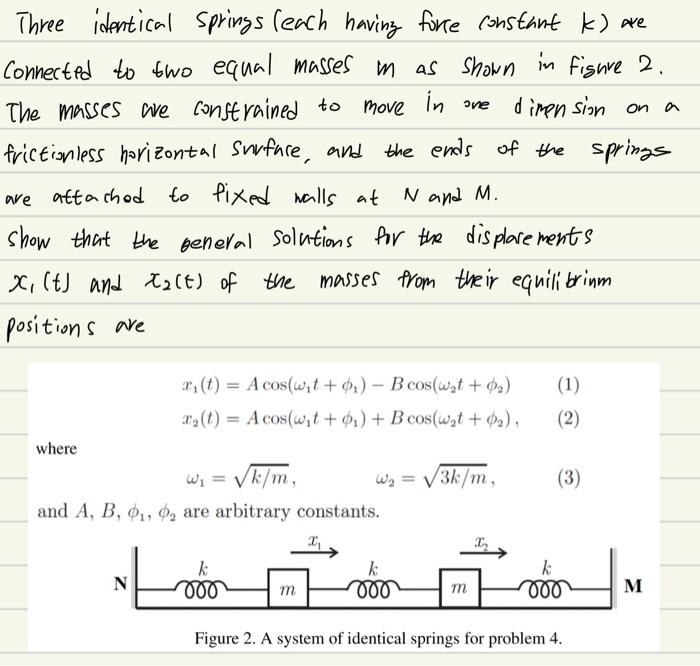 Three identical springs (each having force constant k) are
connected to two equal masses m as shown in figure 2.
The masses are constrained to move in one dimension on a
frictionless horizontal surface, and the ends of the springs
are attached to fixed walls at N and M.
Show that the general solutions for the displacements
x₁(t) and x₂(t) of the masses from their equilibrium
positions are
x₁(t) = A cos(ω₁t + ϕ₁) − B cos(ω₂t + ϕ₂) (1)
x₂(t) = A cos(ω₁t + ϕ₁) + B cos(ω₂t + ϕ₂), (2)
where
ω₁ = √k/m, ω₂ = √3k/m, (3)
and A, B, ϕ₁, ϕ₂ are arbitrary constants.
x₁ x₂
k k k
N m m M
Figure 2. A system of identical springs for problem 4.